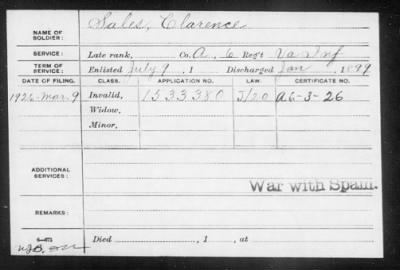 NAME OF SOLDIER: Sales, Clarence
SERVICE: Late rank, Co. A, 6 Regt Va Inf
TERM OF SERVICE: Enlisted July 9, 1 Discharged Jan, 1899
DATE OF FILING. CLASS. APPLICATION NO. LAW. CERTIFICATE NO.
1926 Mar. 9 Invalid, 1533380 J/20 A6-3-26
Widow,
Minor,
ADDITIONAL SERVICES:
War with Spain.
REMARKS:
Died, 1, at